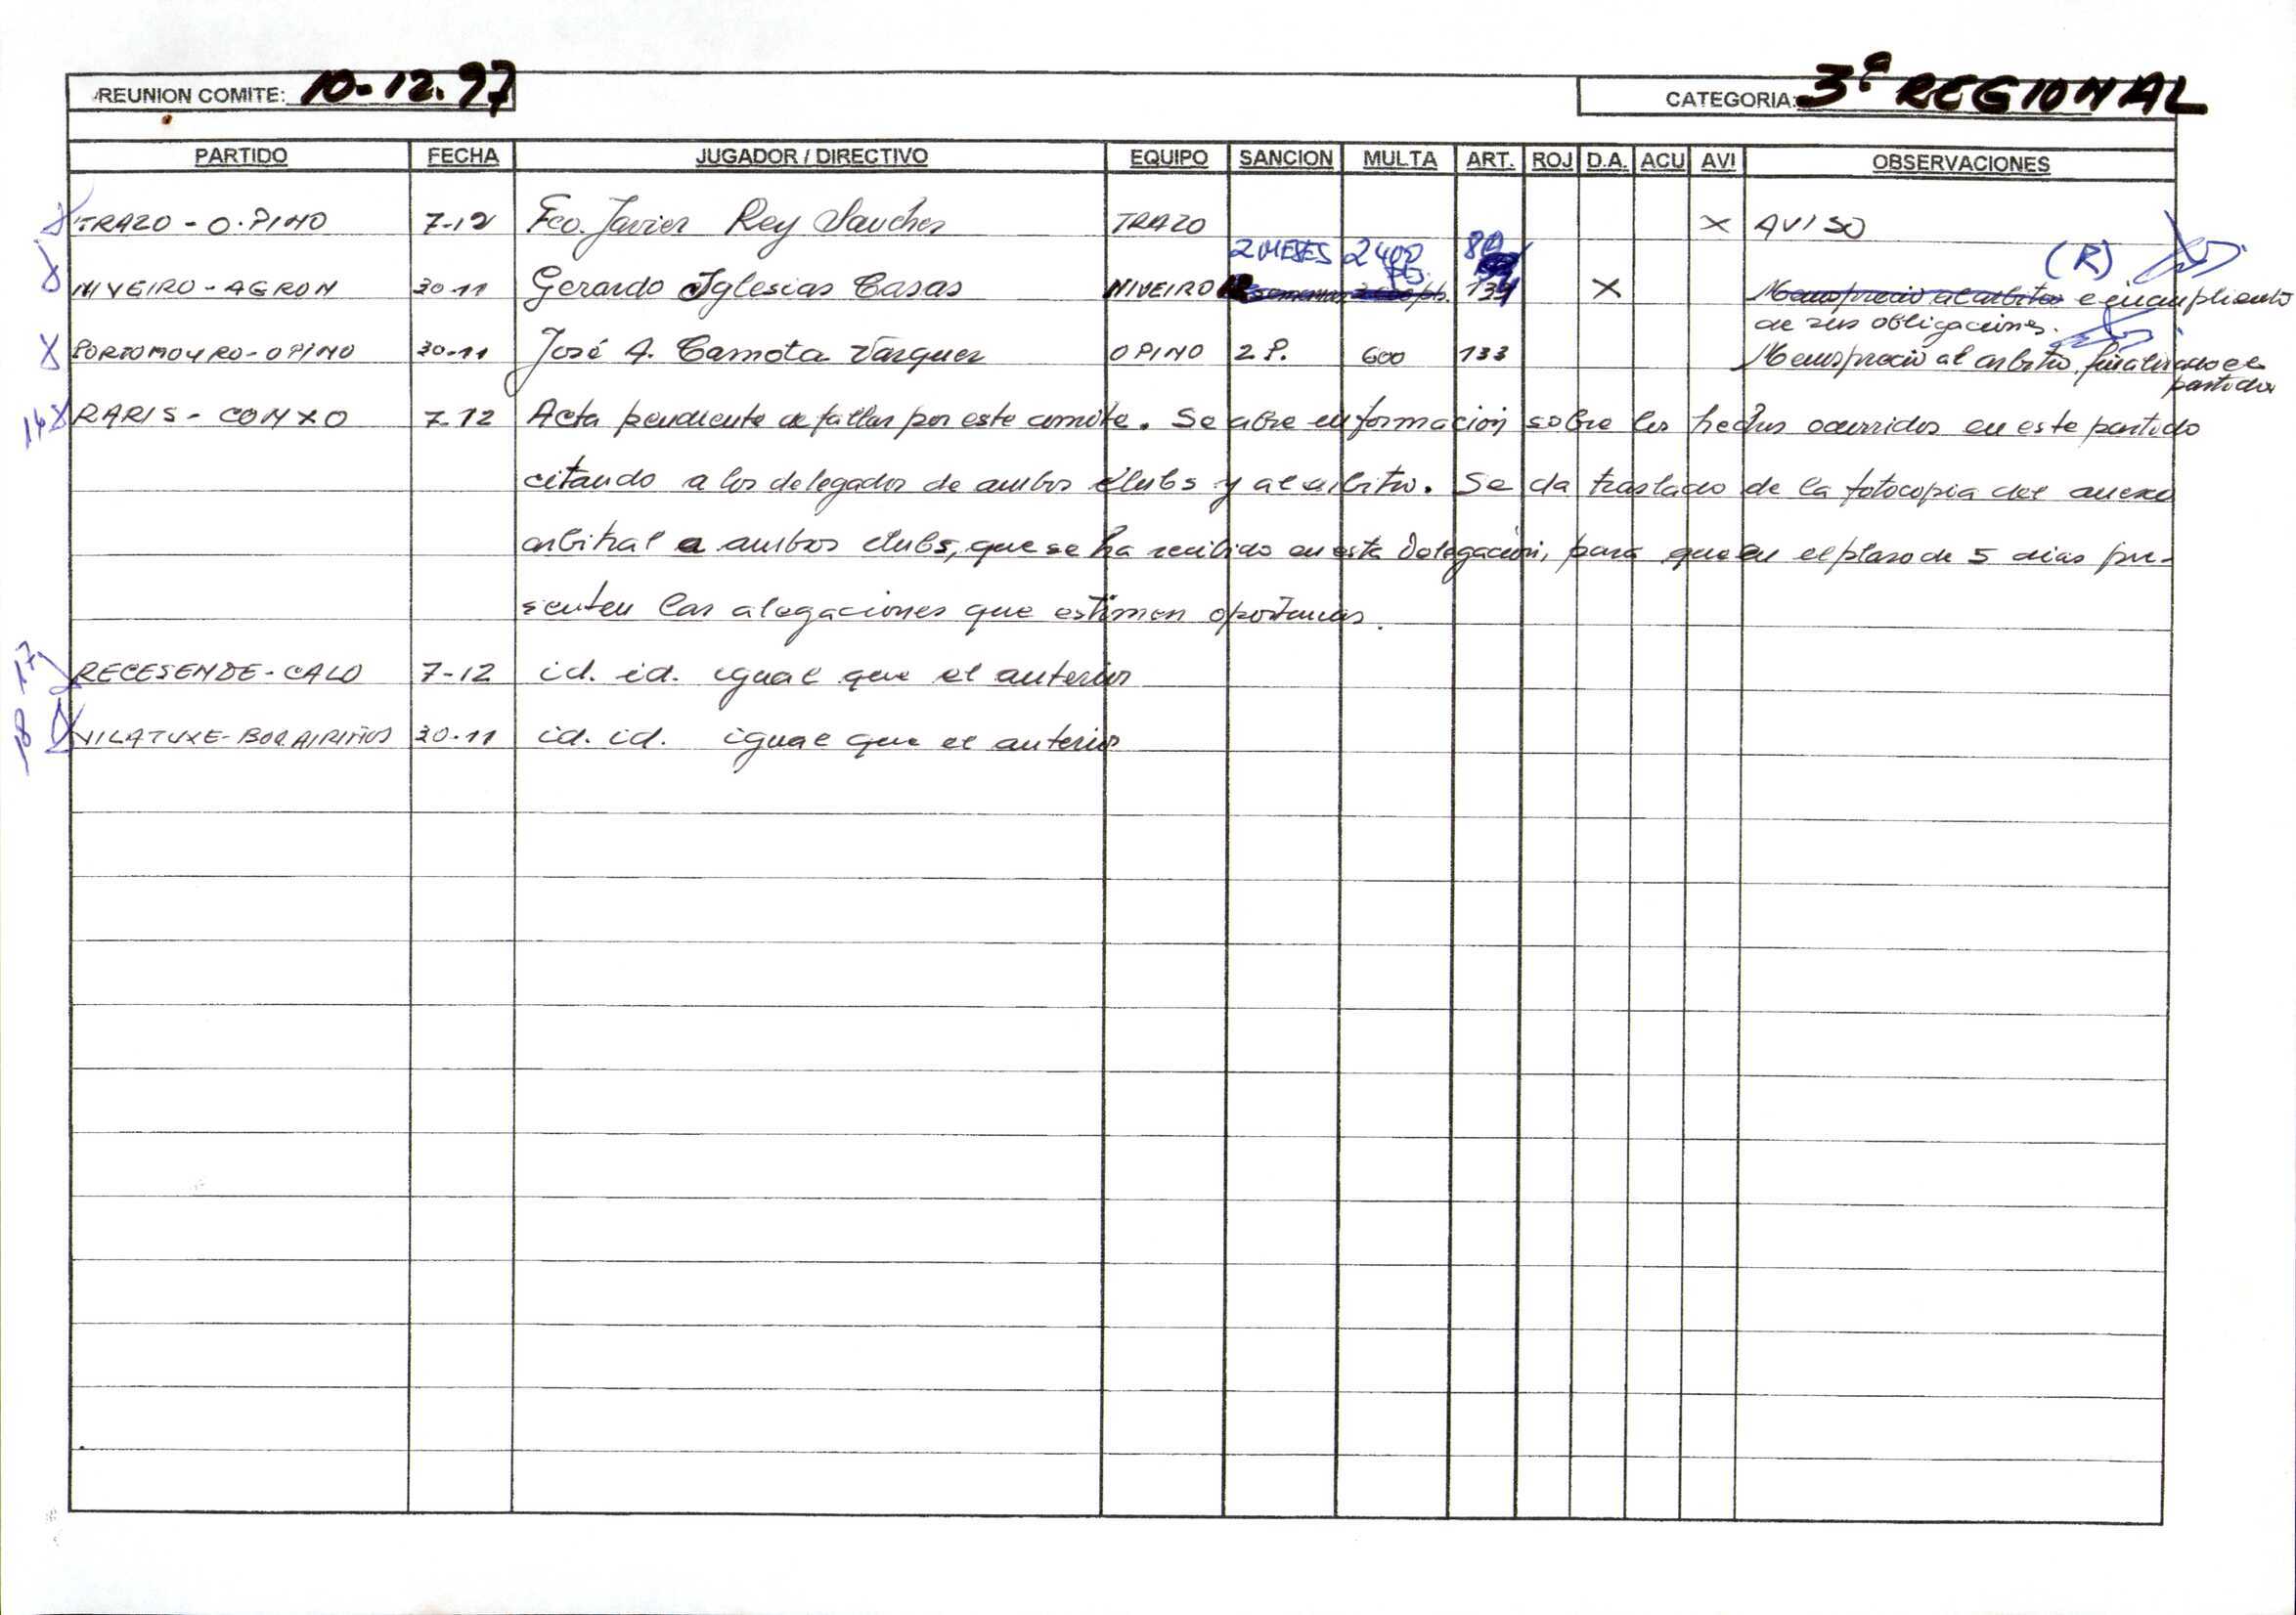 REUNION COMITE: 10-12.97 CATEGORIA: 3ª REGIONAL
PARTIDO FECHA JUGADOR / DIRECTIVO EQUIPO SANCION MULTA ART. ROJ D.A. ACU AVI OBSERVACIONES
TRAZO - O.PINO 7-12 Fco. Javier Rey Sanchez TRAZO X AVISO
2 MESES 2400 (R)
NIVEIRO - AGRON 30-11 Gerardo Iglesias Casas NIVEIRO X Menosprecio al arbitro e incumpliento
de sus obligaciones.
PORTOMOURO - O PINO 30-11 José A. Camota Vázquez O PINO 2 P. 600 133 Menosprecio al arbitro, finalizado el
partido
14 RARIS - CONXO 7-12 Acta pendiente de fallar por este comite. Se abre información sobre los hechos ocurridos en este partido
citando a los delegados de ambos clubs y al arbitro. Se da traslado de la fotocopia del anexo
arbitral a ambos clubs, que se ha recibido en esta Delegación, para que en el plazo de 5 dias pre-
senten las alegaciones que estimen oportunas.
17 RECESENDE - CALO 7-12 id. id. igual que el anterior
18 VILATUXE - BOQAIRIÑOS 30-11 id. id. igual que el anterior